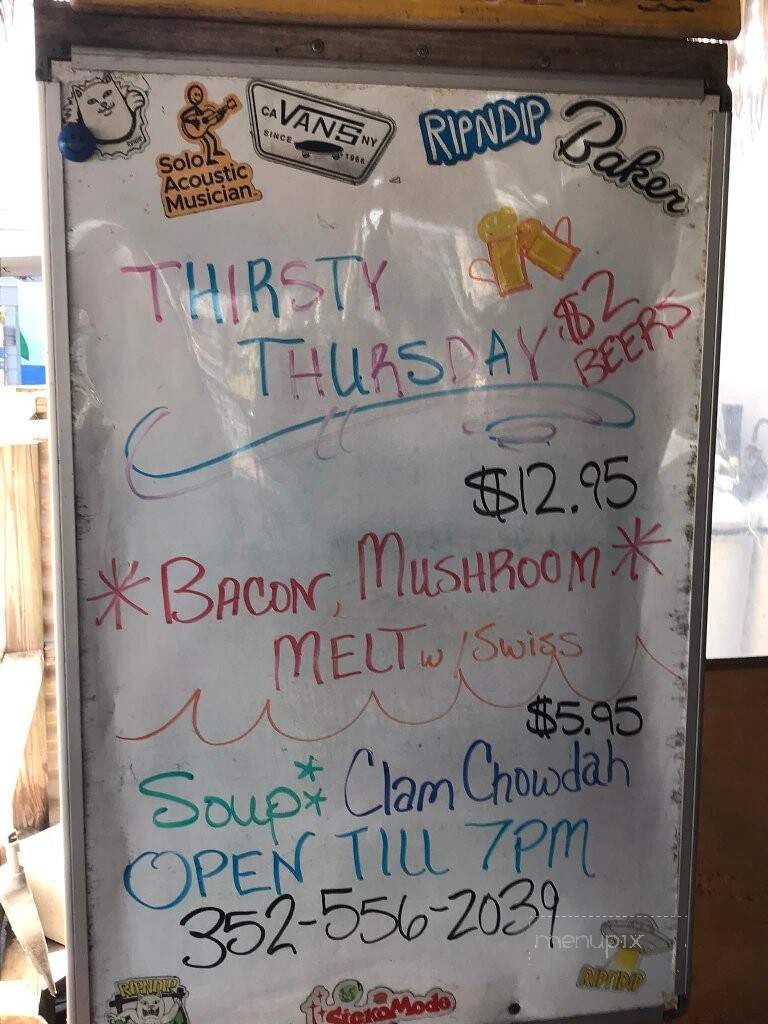 Solo
Acoustic
Musician.
CA VANS NY
SINCE 1966
RIPNDIP
Baker
THIRSTY
THURSDAY
$2
BEERS
$12.95
*BACON, MUSHROOM*
MELT w/Swiss
$5.95
Soup** Clam Chowdah
OPEN TILL 7PM
352-556-2039
menupix
RIPNDIP
RIPNDIP
SickoMode